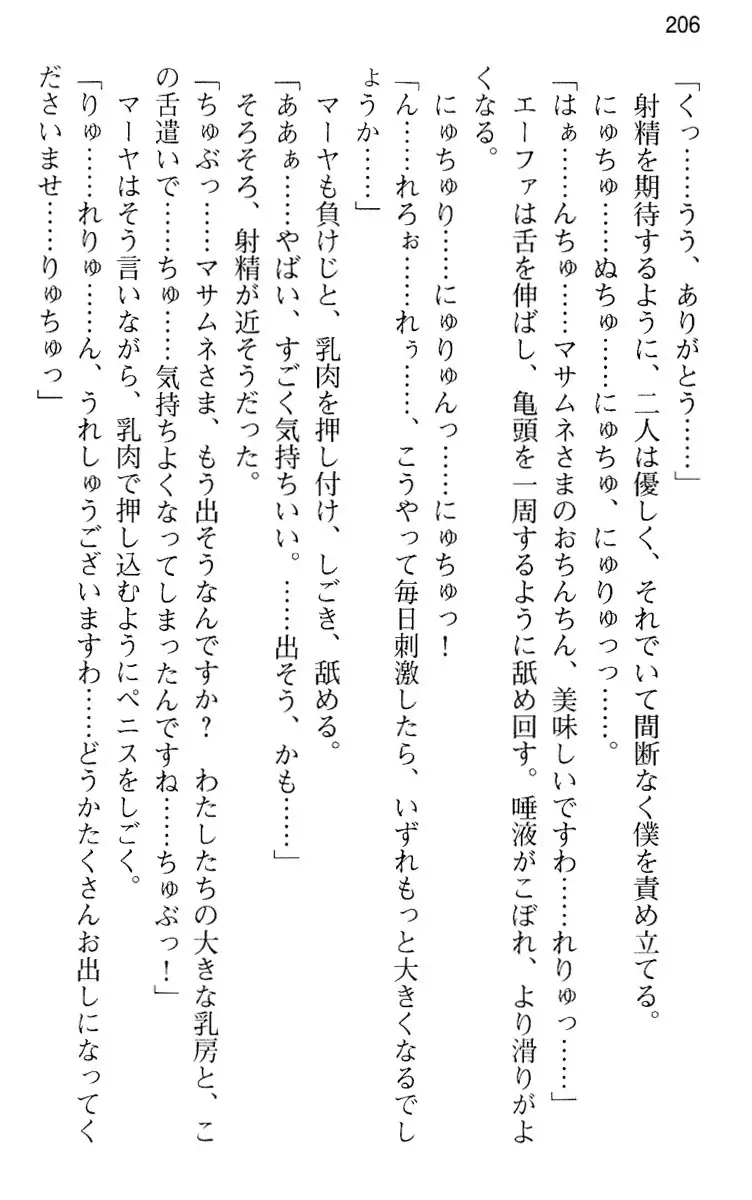 206
「くっ……うう、ありがとう……」
　射精を期待するように、二人は優しく、それでいて間断なく僕を責め立てる。
　にゅちゅ……ぬちゅ……にゅちゅ、にゅりゅっっ……。
「はぁ……んちゅ……マサムネさまのおちんちん、美味しいですわ……れりゅっ……」
　エーファは舌を伸ばし、亀頭を一周するように舐め回す。唾液がこぼれ、より滑りがよ
くなる。
　にゅちゅり……にゅりゅんっ……にゅちゅっ！
「ん……れろぉ……れぅ……、こうやって毎日刺激したら、いずれもっと大きくなるでし
ょうか……」
　マーヤも負けじと、乳肉を押し付け、しごき、舐める。
「ああぁ……やばい、すごく気持ちいい。……出そう、かも……」
　そろそろ、射精が近そうだった。
「ちゅぶっ……マサムネさま、もう出そうなんですか？　わたしたちの大きな乳房と、こ
の舌遣いで……ちゅ……気持ちよくなってしまったんですね……ちゅぶっ！」
　マーヤはそう言いながら、乳肉で押し込むようにペニスをしごく。
「りゅ……れりゅ……ん、うれしゅうございますわ……どうかたくさんお出しになってく
ださいませ……りゅちゅっ」